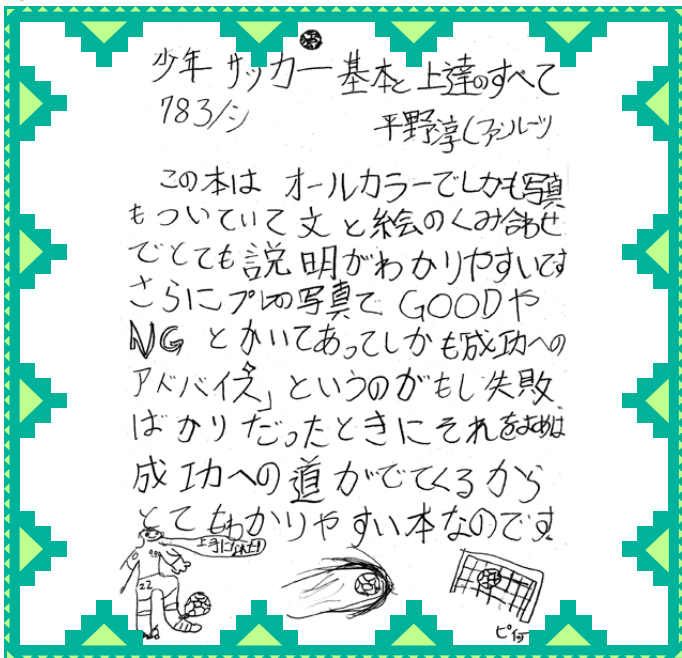 少年サッカー基本と上達のすべて
783/シ
平野淳(ファンルーツ
この本は オールカラーでしかも写真
もついていて文と絵のくみ合わせ
でとても説明がわかりやすいです
さらにプレーの写真で GOODや
NG とかいてあってしかも成功への
アドバイス」というのがもし失敗
ばかりだったときにそれをよめば
成功への道がでてくるから
とてもわかりやすい本なのです
上手になれた!
22